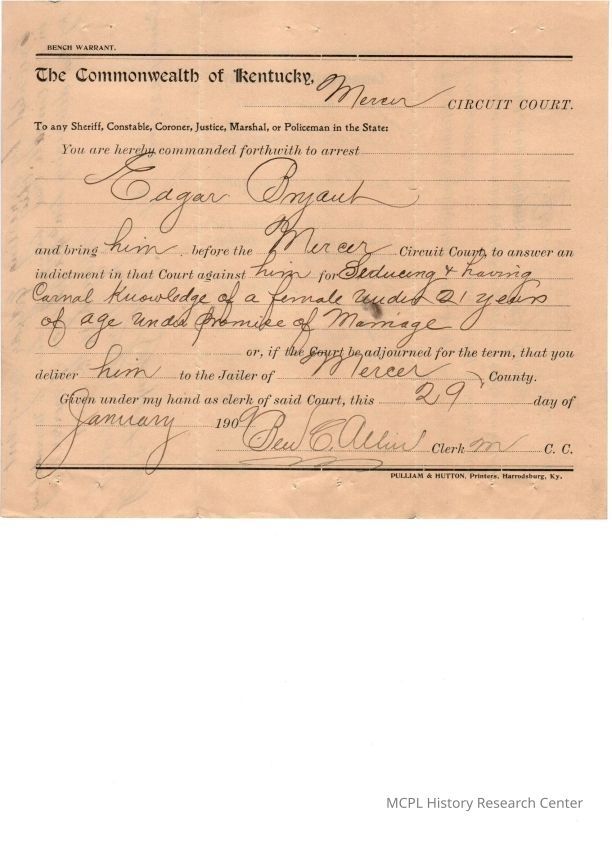 BENCH WARRANT.
The Commonwealth of Kentucky,
Mercer CIRCUIT COURT.
To any Sheriff, Constable, Coroner, Justice, Marshal, or Policeman in the State:
You are hereby commanded forthwith to arrest
Edgar Bryant
and bring him before the Mercer Circuit Court, to answer an
indictment in that Court against him for Seducing & having
Carnal Knowledge of a female under 21 years
of age under promise of Marriage
or, if the Court be adjourned for the term, that you
deliver him to the Jailer of Mercer County.
Given under my hand as clerk of said Court, this 29 day of
January 1909
Ben C. Allin Clerk M C. C.
PULLIAM & HUTTON, Printers, Harrodsburg, Ky.
MCPL History Research Center